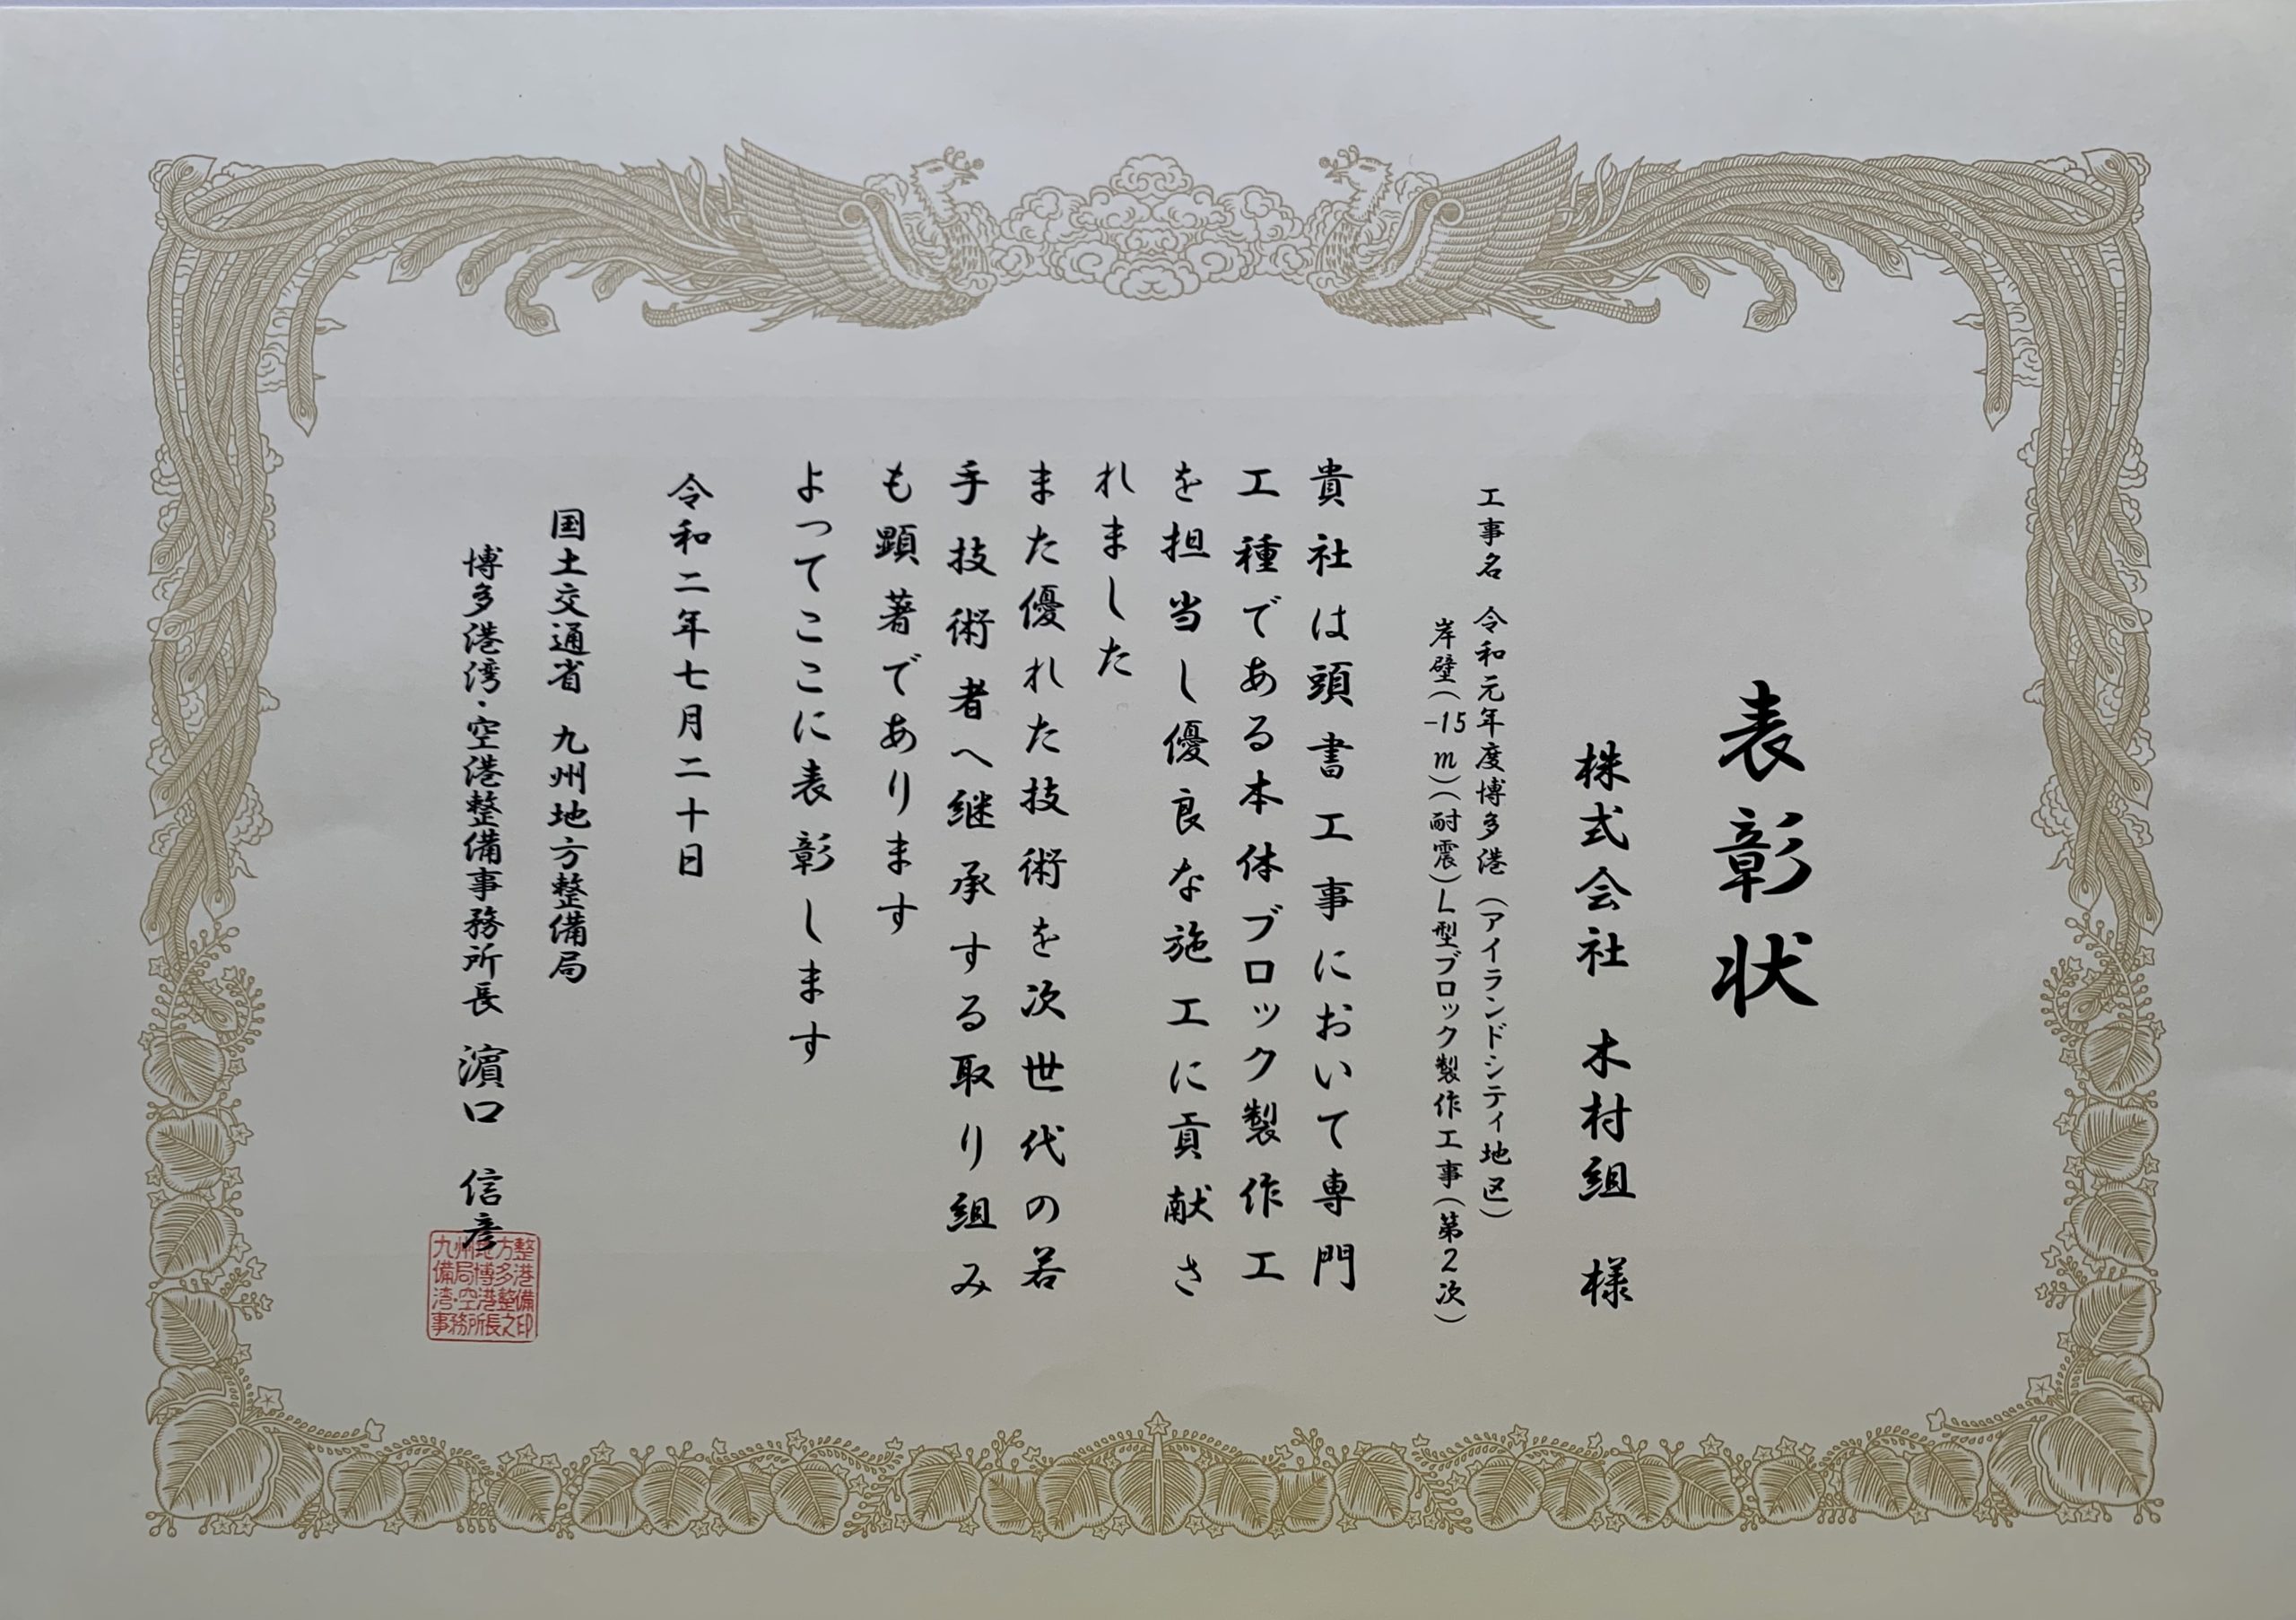 表彰状
株式会社 木村組 様
工事名 令和元年度博多港(アイランドシティ地区)
岸壁(-15m)(耐震)L型ブロック製作工事(第2次)
貴社は頭書工事において専門
工種である本体ブロック製作工
を担当し優良な施工に貢献さ
れました
また優れた技術を次世代の若
手技術者へ継承する取り組み
も顕著であります
よってここに表彰します
令和二年七月二十日
国土交通省 九州地方整備局
博多港湾・空港整備事務所長 濵口 信彦
九州地方整
備局博多港
湾・空港整備
事務所長之印